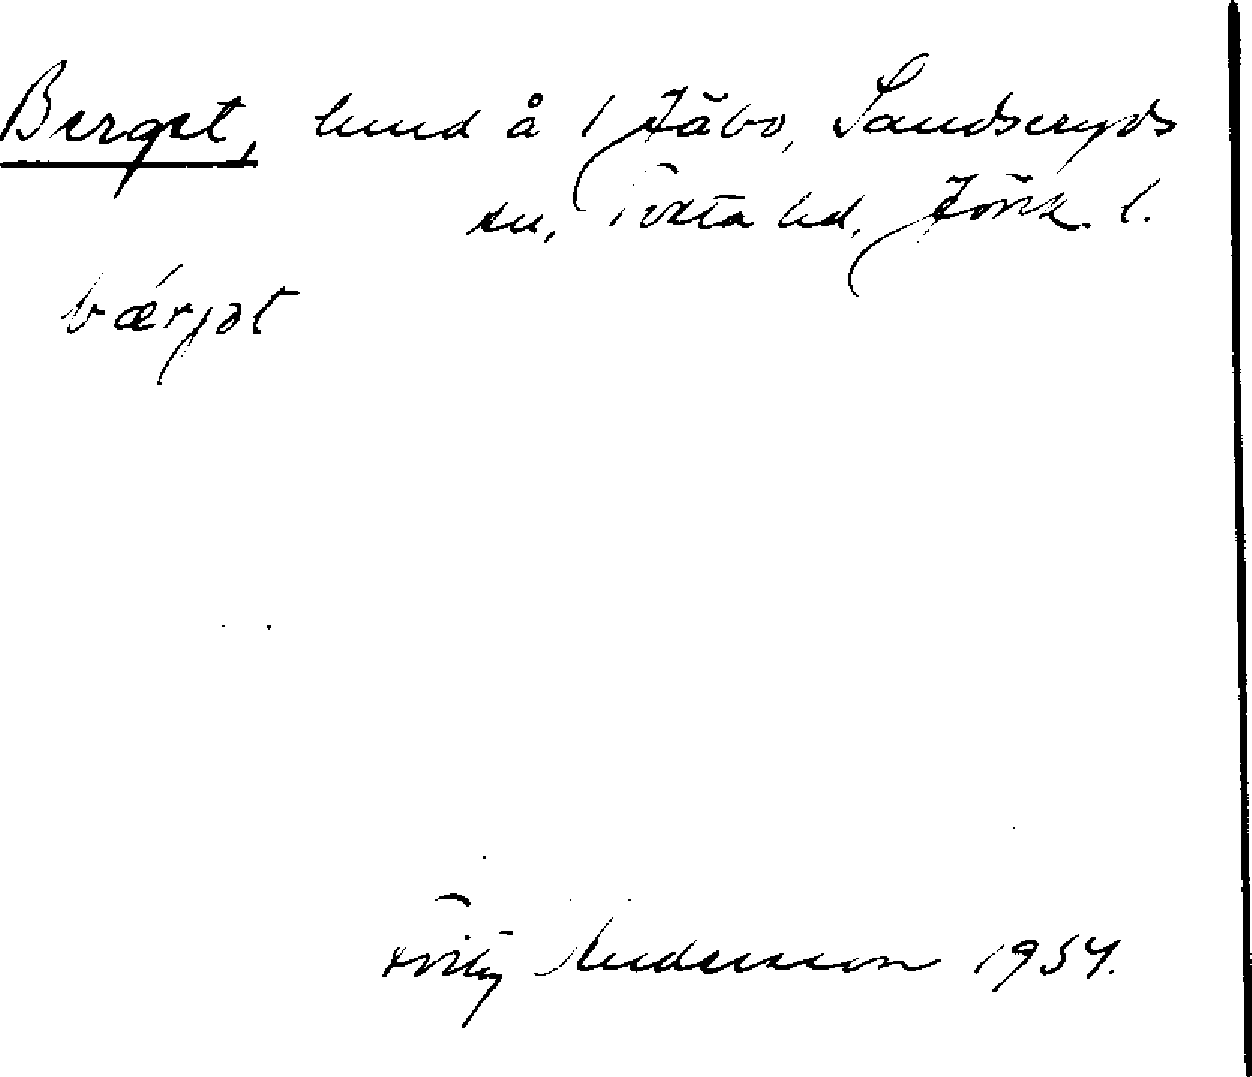 Berget, lund å 1 Jäbo, Sandseryds
sn, Tveta hd, Jönk. l.
bærjət
Fritz Andersson 1954.